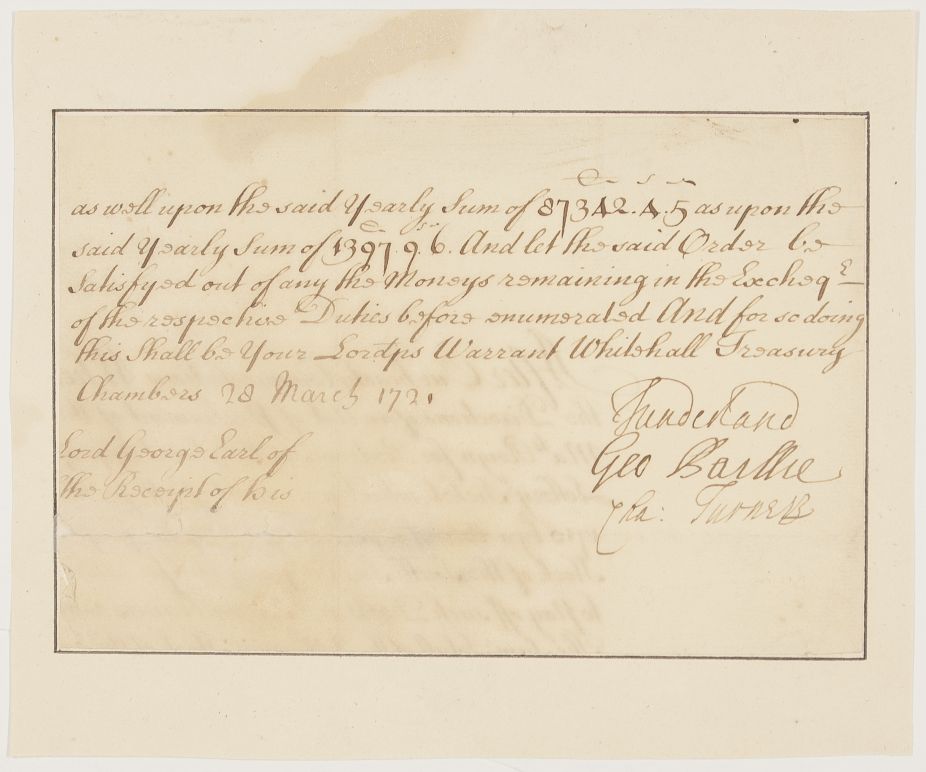 as well upon the said Yearly Sum of 87342.4.5 as upon the
said Yearly Sum of 1397.9.6. And let the said Order be
Satisfyed out of any the Moneys remaining in the Excheqr
of the respective Duties before enumerated And for so doing
this Shall be Your Lordps Warrant Whitehall Treasury
Chambers 28 March 1721
Sunderland
Lord George Earl of
Geo Baillie
the Receipt of his
Cha: Turner